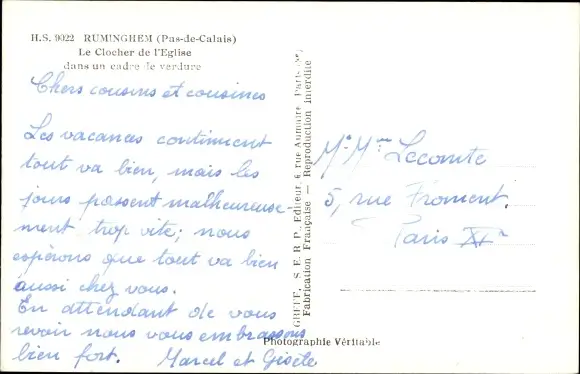 H.S. 9022 RUMINGHEM (Pas-de-Calais)
Le Clocher de l'Eglise
dans un cadre de verdure
Chers cousins et cousines
Les vacances continuent
tout va bien, mais les
jours passent malheureuse-
ment trop vite; nous
espérons que tout va bien
aussi chez vous.
En attendant de vous
revoir nous vous embrassons
bien fort. Marcel et Gisèle
S.E.R.P., Editeur, 6, rue Aumaire, Paris (3e)
Fabrication Française — Reproduction interdite
Photographie Véritable
Mr Mme Lecomte
5, rue Froment.
Paris XIe